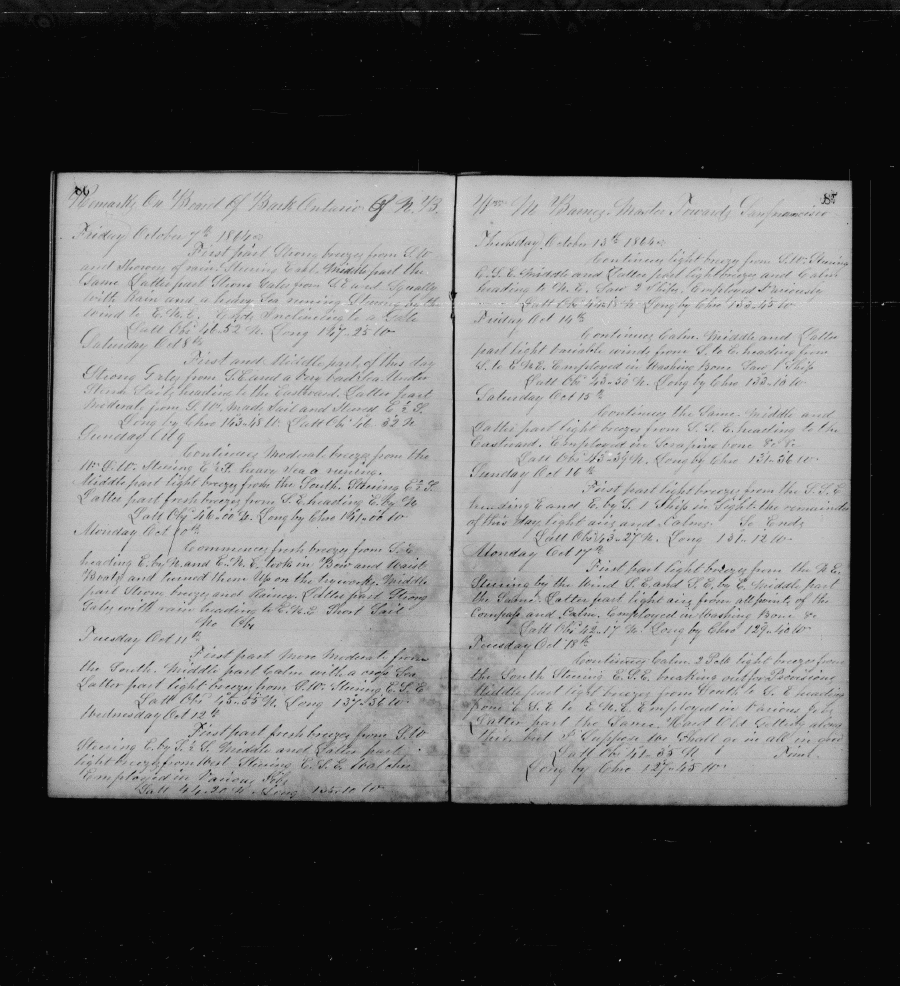 86
Remarks On Board Of Bark Ontario Of N. B.
Friday October 7th 1864
First part Strong breezes from S.W
and Showers of rain Steering East. Middle part the
Same Latter part Strong Gales from S.E and Squally
with Rain and a heavy Sea running Strong in the
wind to E.N.E. Ends Inclineing to a Gale
Latt Obs 46-52 N. Long 147-25 W
Saturday Oct 8th
First and Middle part of this day
Strong Gales from S.E and a very bad Sea Under
Short Sail heading to the Eastward. Latter part
Moderate from S.W. made Sail and Steered E & S.
Long by Chro 143-48 W Latt Obs 46 32 N
Sunday Oct 9
Continues Moderate breezes from the
W.S.W. Steering E & S. heavy Sea a runing
Middle part light breezes from the South. Steering E & S
Latter part fresh breezes from S.E heading E. by N
Latt Obs 46-00 N. Long by Chro 141-06 W
Monday Oct 10th
Commences fresh breezes from S.E.
heading E. by N and E.N.E. took in Bow and Waist
Boats and turned them Up on the
Middle
part Strong breezes and Rainey. Latter part Strong
Gales with rain heading to E.N.E Short Sail
No Obs
Tuesday Oct 11th
First part More Moderate from
the South. Middle part Calm with a Sea
Latter part light breezes from S.W. Steering E.S.E
Latt Obs 45-55 N. Long 137-36 W
Wednesday Oct 12th
First part fresh breezes from S.W
Steering E. by S. & S. Middle and Latter part
light breezes from West Steering E.S.E.
Employed in Various Jobs
Latt 44-20 N. Long 134-10 W
87
Wm M Barnes Master Towards San francisco
Thursday October 13th 1864
Continues light breezes from S.W. Steering
E.S.E. Middle and Latter part light breezes and Calm
heading to N.E. Saw 2 Ships. Employed Variously
Latt Obs N. Long by Chro 133-45 W
Friday Oct 14th
Continues Calm. Middle and Latter
part light Variable winds from S. to E. heading from
S. to E.N.E. Employed in Washing Bone Saw 1 Ship
Latt Obs 43-50 N. Long by Chro 132-18 W
Saturday Oct 15th
Continues the Same. Middle and
Latter part light breezes from S.S.E. heading to the
Eastward. Employed in Scraping bone &c &c
Latt Obs 43-39 N. Long by Chro 131-36 W
Sunday Oct 16th
First part light breezes from the S.S.E
heading E and E. by S. 1 Ship in Sight. the remainder
of this day light airs and Calms. So Ends
Latt Obs 43-27 N. Long 131-12 W
Monday Oct 17th
First part light breezes from the N.E.
Steering by the Wind S.E and S.E. by E. Middle part
the Same. Latter part light airs from all points of the
Compass and Calm. Employed in Washing Bone &c
Latt Obs 42-17 N. Long by Chro 129-40 W
Tuesday Oct 18th
Continues Calm. 2 P.M. light breezes from
the South Steering E.S.E. breaking out for Provisions
Middle part light breezes from South to S.E heading
from E.S.E to E.N.E. Employed in Various Jobs
Latter part the Same. Hard Old
this but I Suppose we Shall get in all in good
Latt Obs 41-35 N Time.
Long by Chro 127-45 W